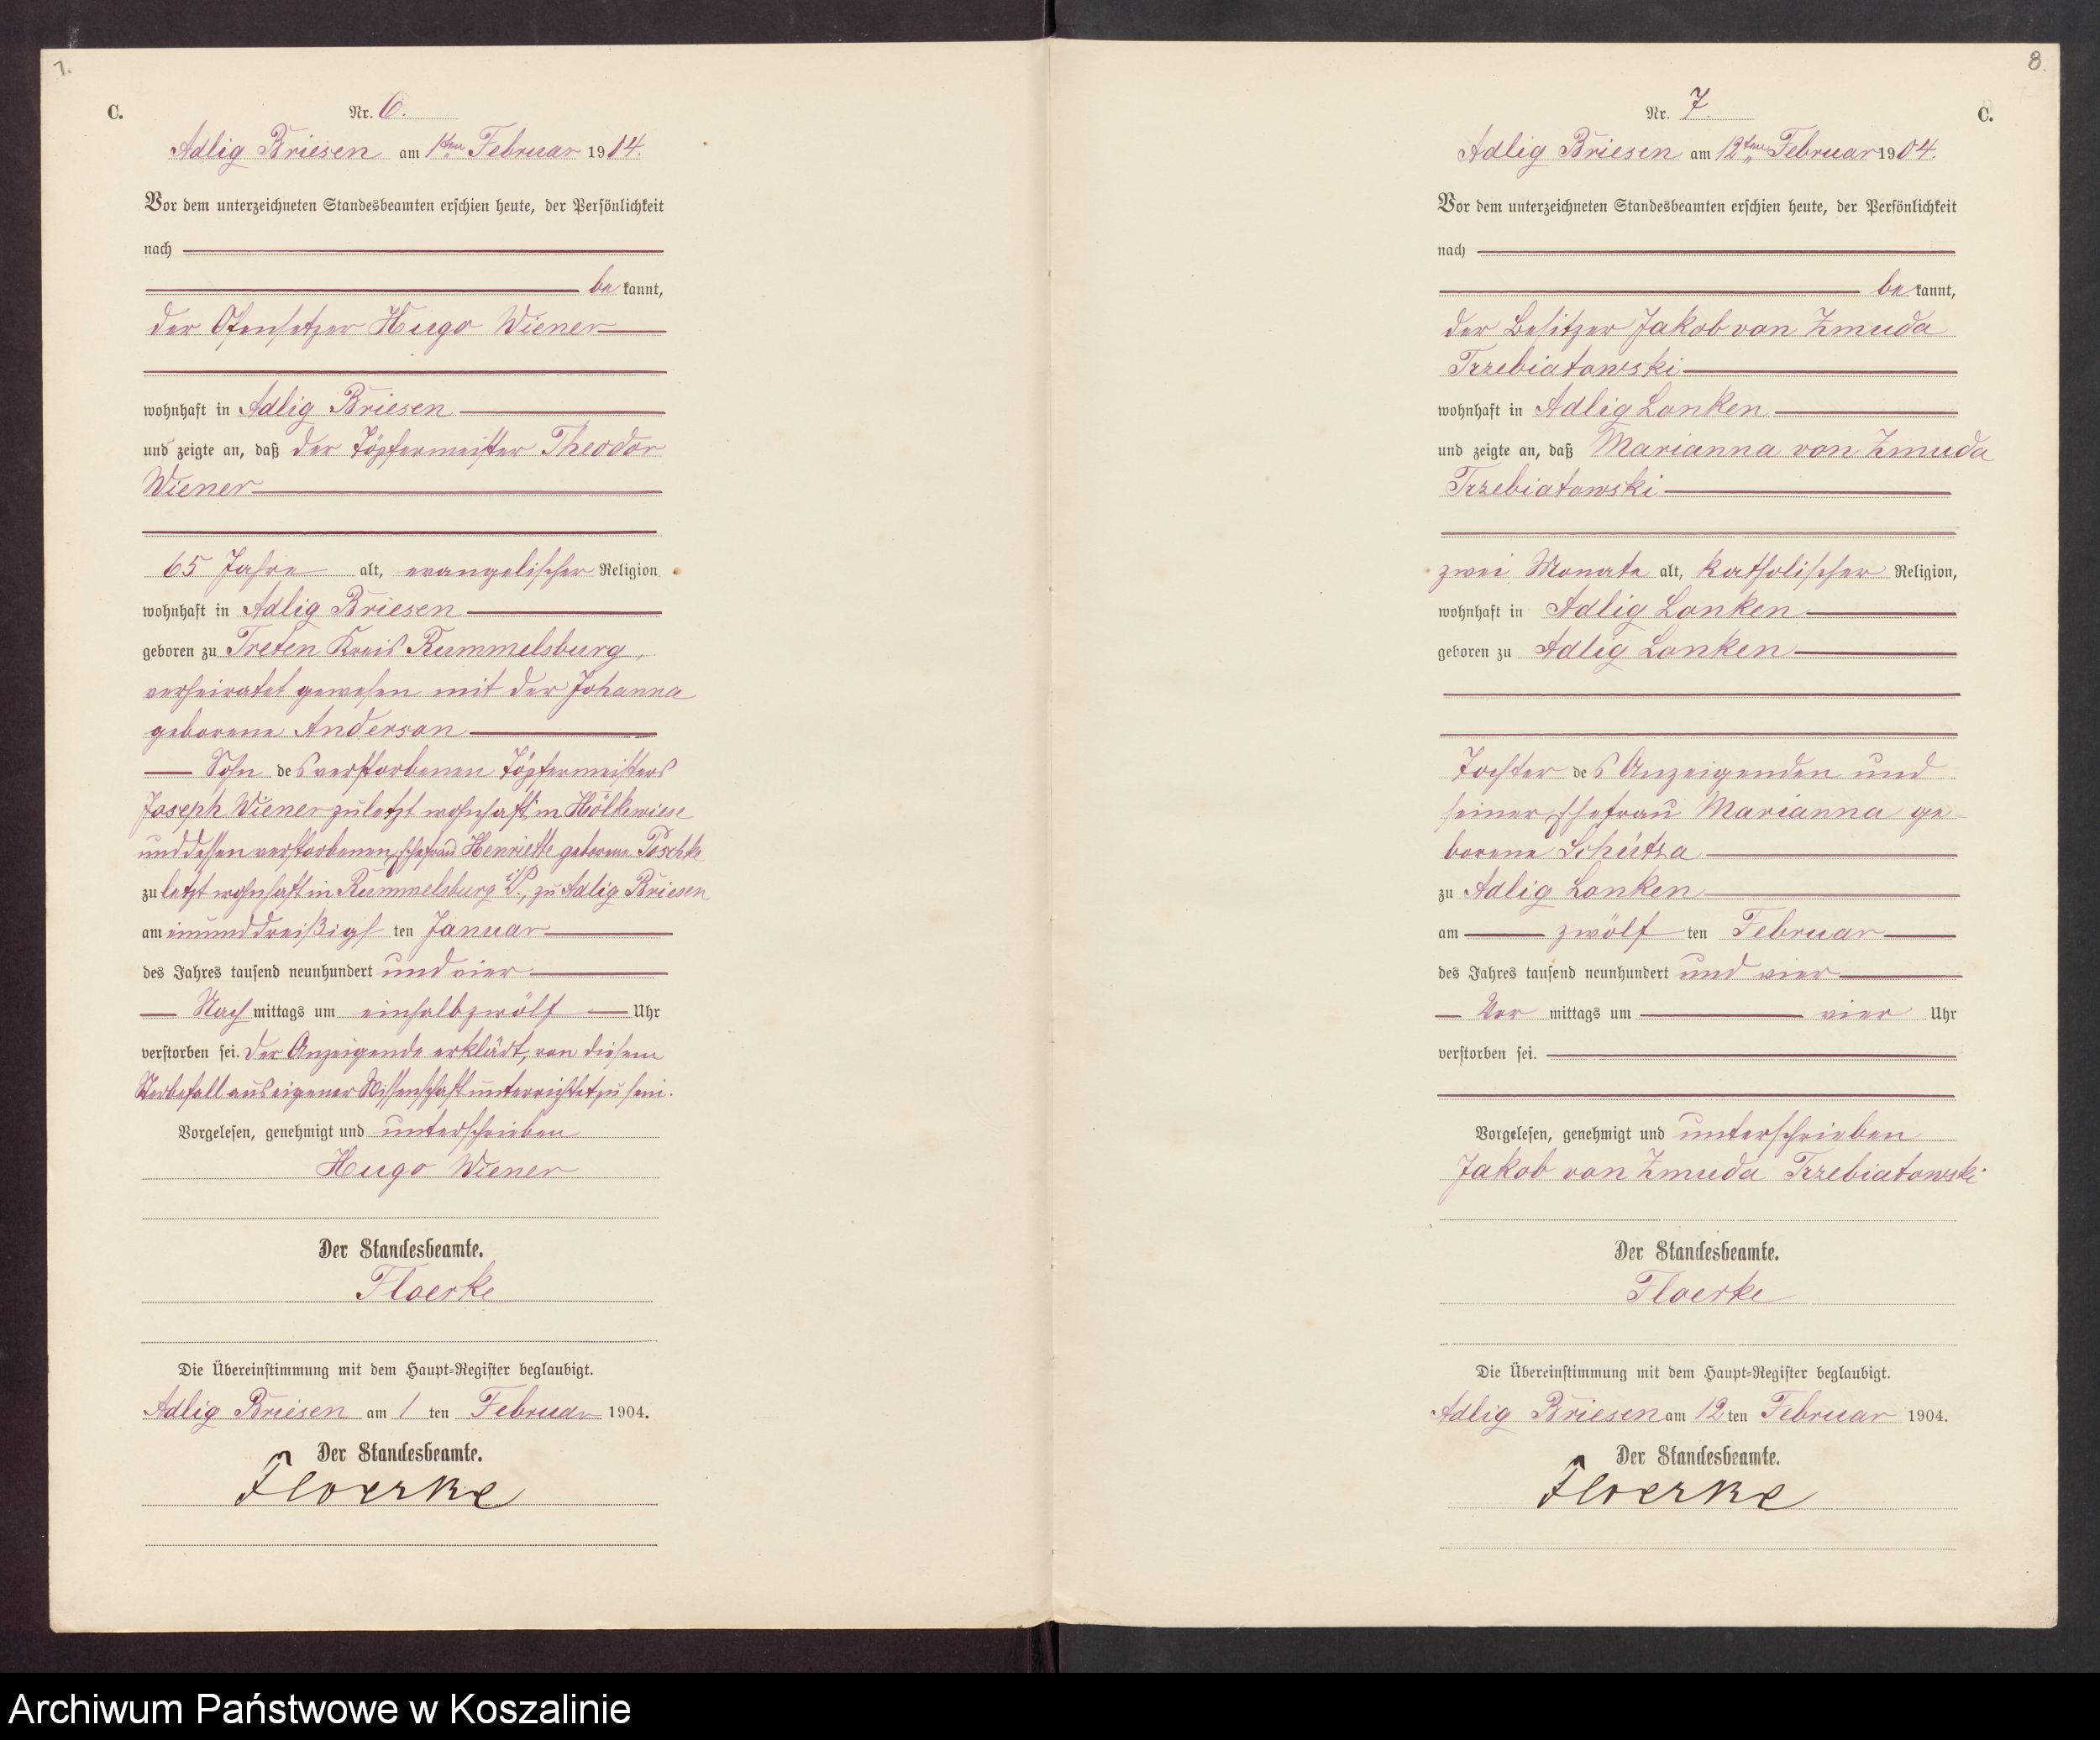 7.
C.
Nr. 6.
Adlig Briesen am 1ten Februar 1904.
Vor dem unterzeichneten Standesbeamten erschien heute, der Persönlichkeit
nach
be kannt,
der Ofensetzer Hugo Wiener
wohnhaft in Adlig Briesen
und zeigte an, daß der Töpfermeister Theodor
Wiener
65 Jahre alt, evangelischer Religion
wohnhaft in Adlig Briesen
geboren zu Treten Kreis Rummelsburg,
verheiratet gewesen mit der Johanna
geborene Anderson
Sohn des verstorbenen Töpfermeisters
Joseph Wiener zuletzt wohnhaft in Hölkewiese
und dessen verstorbenen Ehefrau Henriette geborene Poschke
zuletzt wohnhaft in Rummelsburg i/P., zu Adlig Briesen
am einunddreißigs ten Januar
des Jahres tausend neunhundert und vier
Nach mittags um einhalbzwölf Uhr
verstorben sei. Der Anzeigende erklärt, von diesem
Sterbefall aus eigener Wissenschaft unterrichtet zu sein.
Vorgelesen, genehmigt und unterschrieben
Hugo Wiener
Der Standesbeamte.
Floerke
Die Übereinstimmung mit dem Haupt-Register beglaubigt.
Adlig Briesen am 1 ten Februar 1904.
Der Standesbeamte.
Floerke
8.
Nr. 7.
C.
Adlig Briesen am 12ten Februar 1904.
Vor dem unterzeichneten Standesbeamten erschien heute, der Persönlichkeit
nach
be kannt,
der Besitzer Jakob von Zmuda
Trzebiatowski
wohnhaft in Adlig Lonken
und zeigte an, daß Marianna von Zmuda
Trzebiatowski
zwei Monate alt, katholischer Religion,
wohnhaft in Adlig Lonken
geboren zu Adlig Lonken
Tochter des Anzeigenden und
seiner Ehefrau Marianna ge-
borene Schütza
zu Adlig Lonken
am zwölf ten Februar
des Jahres tausend neunhundert und vier
Vor mittags um vier Uhr
verstorben sei.
Vorgelesen, genehmigt und unterschrieben
Jakob von Zmuda Trzebiatowski
Der Standesbeamte.
Floerke
Die Übereinstimmung mit dem Haupt-Register beglaubigt.
Adlig Briesen am 12 ten Februar 1904.
Der Standesbeamte.
Floerke
Archiwum Państwowe w Koszalinie